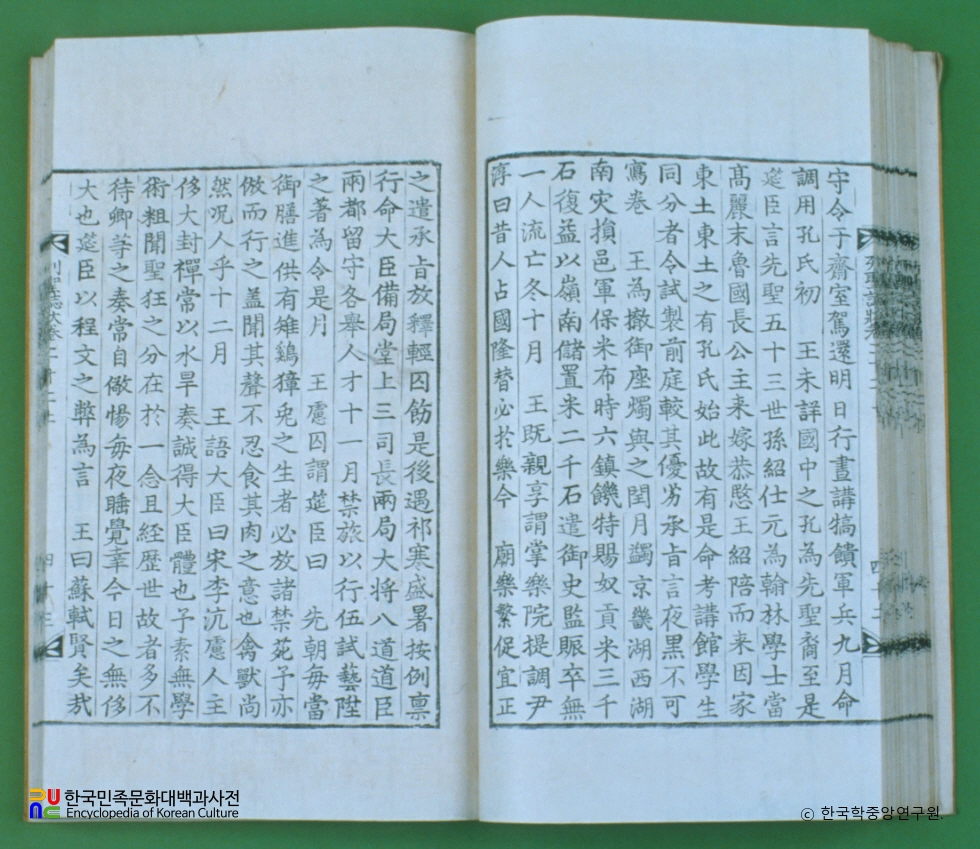 守令于齋室駕還明日行晝講犒饋軍兵九月命
調用孔氏初 王未詳國中之孔為先聖裔至是
筵臣言先聖五十三世孫紹仕元為翰林學士當
高麗末魯國長公主来嫁恭愍王紹陪而来因家
東土東土之有孔氏始此故有是命考講館學生
同分者令試製前庭較其優劣承旨言夜黑不可
寫卷 王為撤御座燭與之閏月蠲京畿湖西湖
南灾損邑軍保米布時六鎮饑特賜奴貢米三千
石復益以嶺南儲置米二千石遣御史監賑卒無
一人流亡冬十月 王既親享謂掌樂院提調尹
㝚曰昔人占國隆替必於樂今 廟樂繁促宜正
列聖誌狀卷二十二
四十二
之遣承旨放釋輕囚飭是後遇祁寒盛暑按例禀
行命大臣備局堂上三司長兩局大将八道道臣
兩都留守各舉人才十一月禁旅以行伍試藝陞
之著為令是月 王慮囚謂筵臣曰 先朝每當
御膳進供有雉鷄獐兎之生者必放諸禁苑予亦
倣而行之盖聞其聲不忍食其肉之意也禽獸尚
然况人乎十二月 王語大臣曰宋李沆慮人主
侈大封禪常以水旱奏誠得大臣體也予素無學
術粗聞聖狂之分在於一念且経歷世故者多不
待卿等之奏常自儆惕每夜睡覺幸今日之無侈
大也筵臣以程文之弊為言 王曰蘇軾賢矣㢤
한국민족문화대백과사전
Encyclopedia of Korean Culture
ⓒ 한국학중앙연구원.